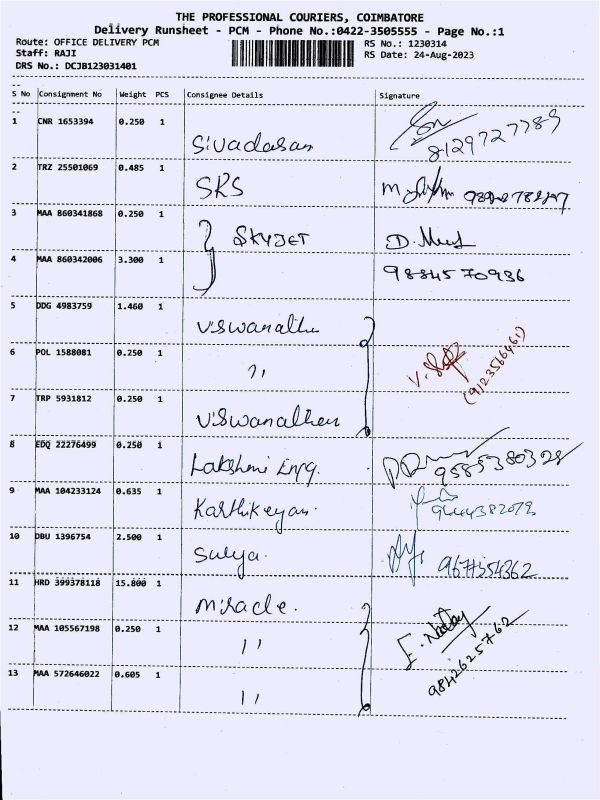 THE PROFESSIONAL COURIERS, COIMBATORE
Delivery Runsheet - PCM - Phone No.:0422-3505555 - Page No.:1
Route: OFFICE DELIVERY PCM
Staff: RAJI
DRS No.: DCJB123031401
RS No.: 1230314
RS Date: 24-Aug-2023
S No Consignment No Weight PCS Consignee Details Signature
1 CNR 1653394 0.250 1 Sivadasan 8129727789
2 TRZ 25501069 0.485 1 SRS
3 MAA 860341868 0.250 1 SKYJET
4 MAA 860342006 3.300 1 9884570936
5 DDG 4983759 1.460 1 Viswanathu
6 POL 1588081 0.250 1 " (9123566461)
7 TRP 5931812 0.250 1 Viswanathen
8 EDQ 22276499 0.250 1 Lakshmi Engg. 9585380328
9 MAA 104233124 0.635 1 Karthikeyan.
10 DBU 1396754 2.500 1 Surya.
11 HRD 399378118 15.800 1 Miracle.
12 MAA 105567198 0.250 1 " 9842625762
13 MAA 572646022 0.605 1 "